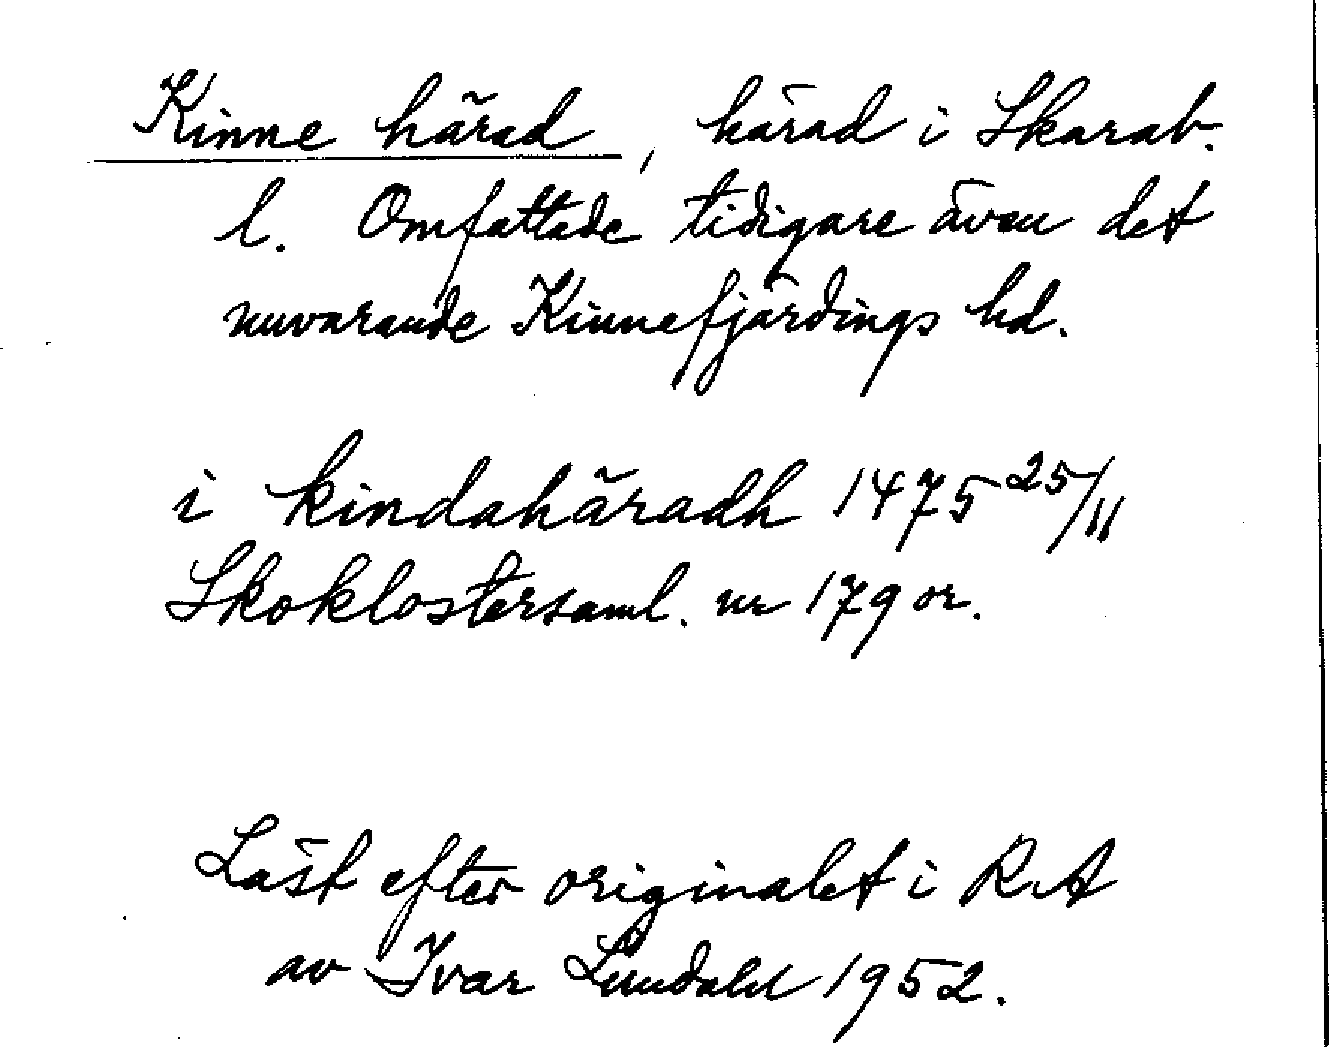 Kinne härad, härad i Skarab.
l. Omfattade tidigare även det
nuvarande Kinnefjärdings hd.
i kindahäradh 1475 25/11
Skoklostersaml. nr 179 or.
Läst efter originalet i RA
av Ivar Lundahl 1952.